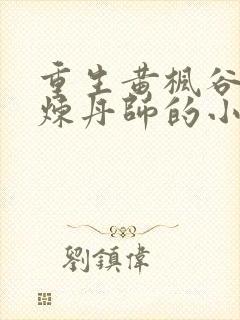 重生黄楓谷
煉丹師的小
劉鎮偉